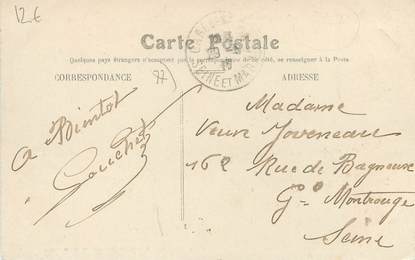 12€
Carte Postale
Quelques pays étrangers n'acceptent pas la correspondance de ce côté, se renseigner à la Poste
CORRESPONDANCE
ADRESSE
77
SEINE ET M
A Bientot
Gauchet
Madame
Veuve Joveneau
162 Rue de Bagneux
Gd Montrouge
Seine